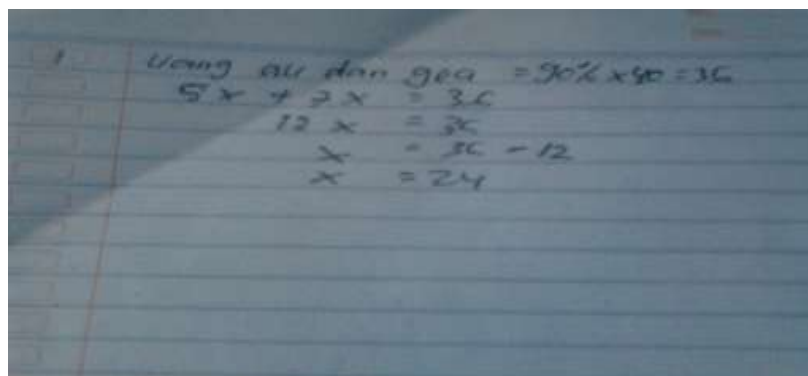 1 Uang ali dan gea = 90% x 40 = 36
5x + 7x = 36
12x = 36
x = 36 - 12
x = 24